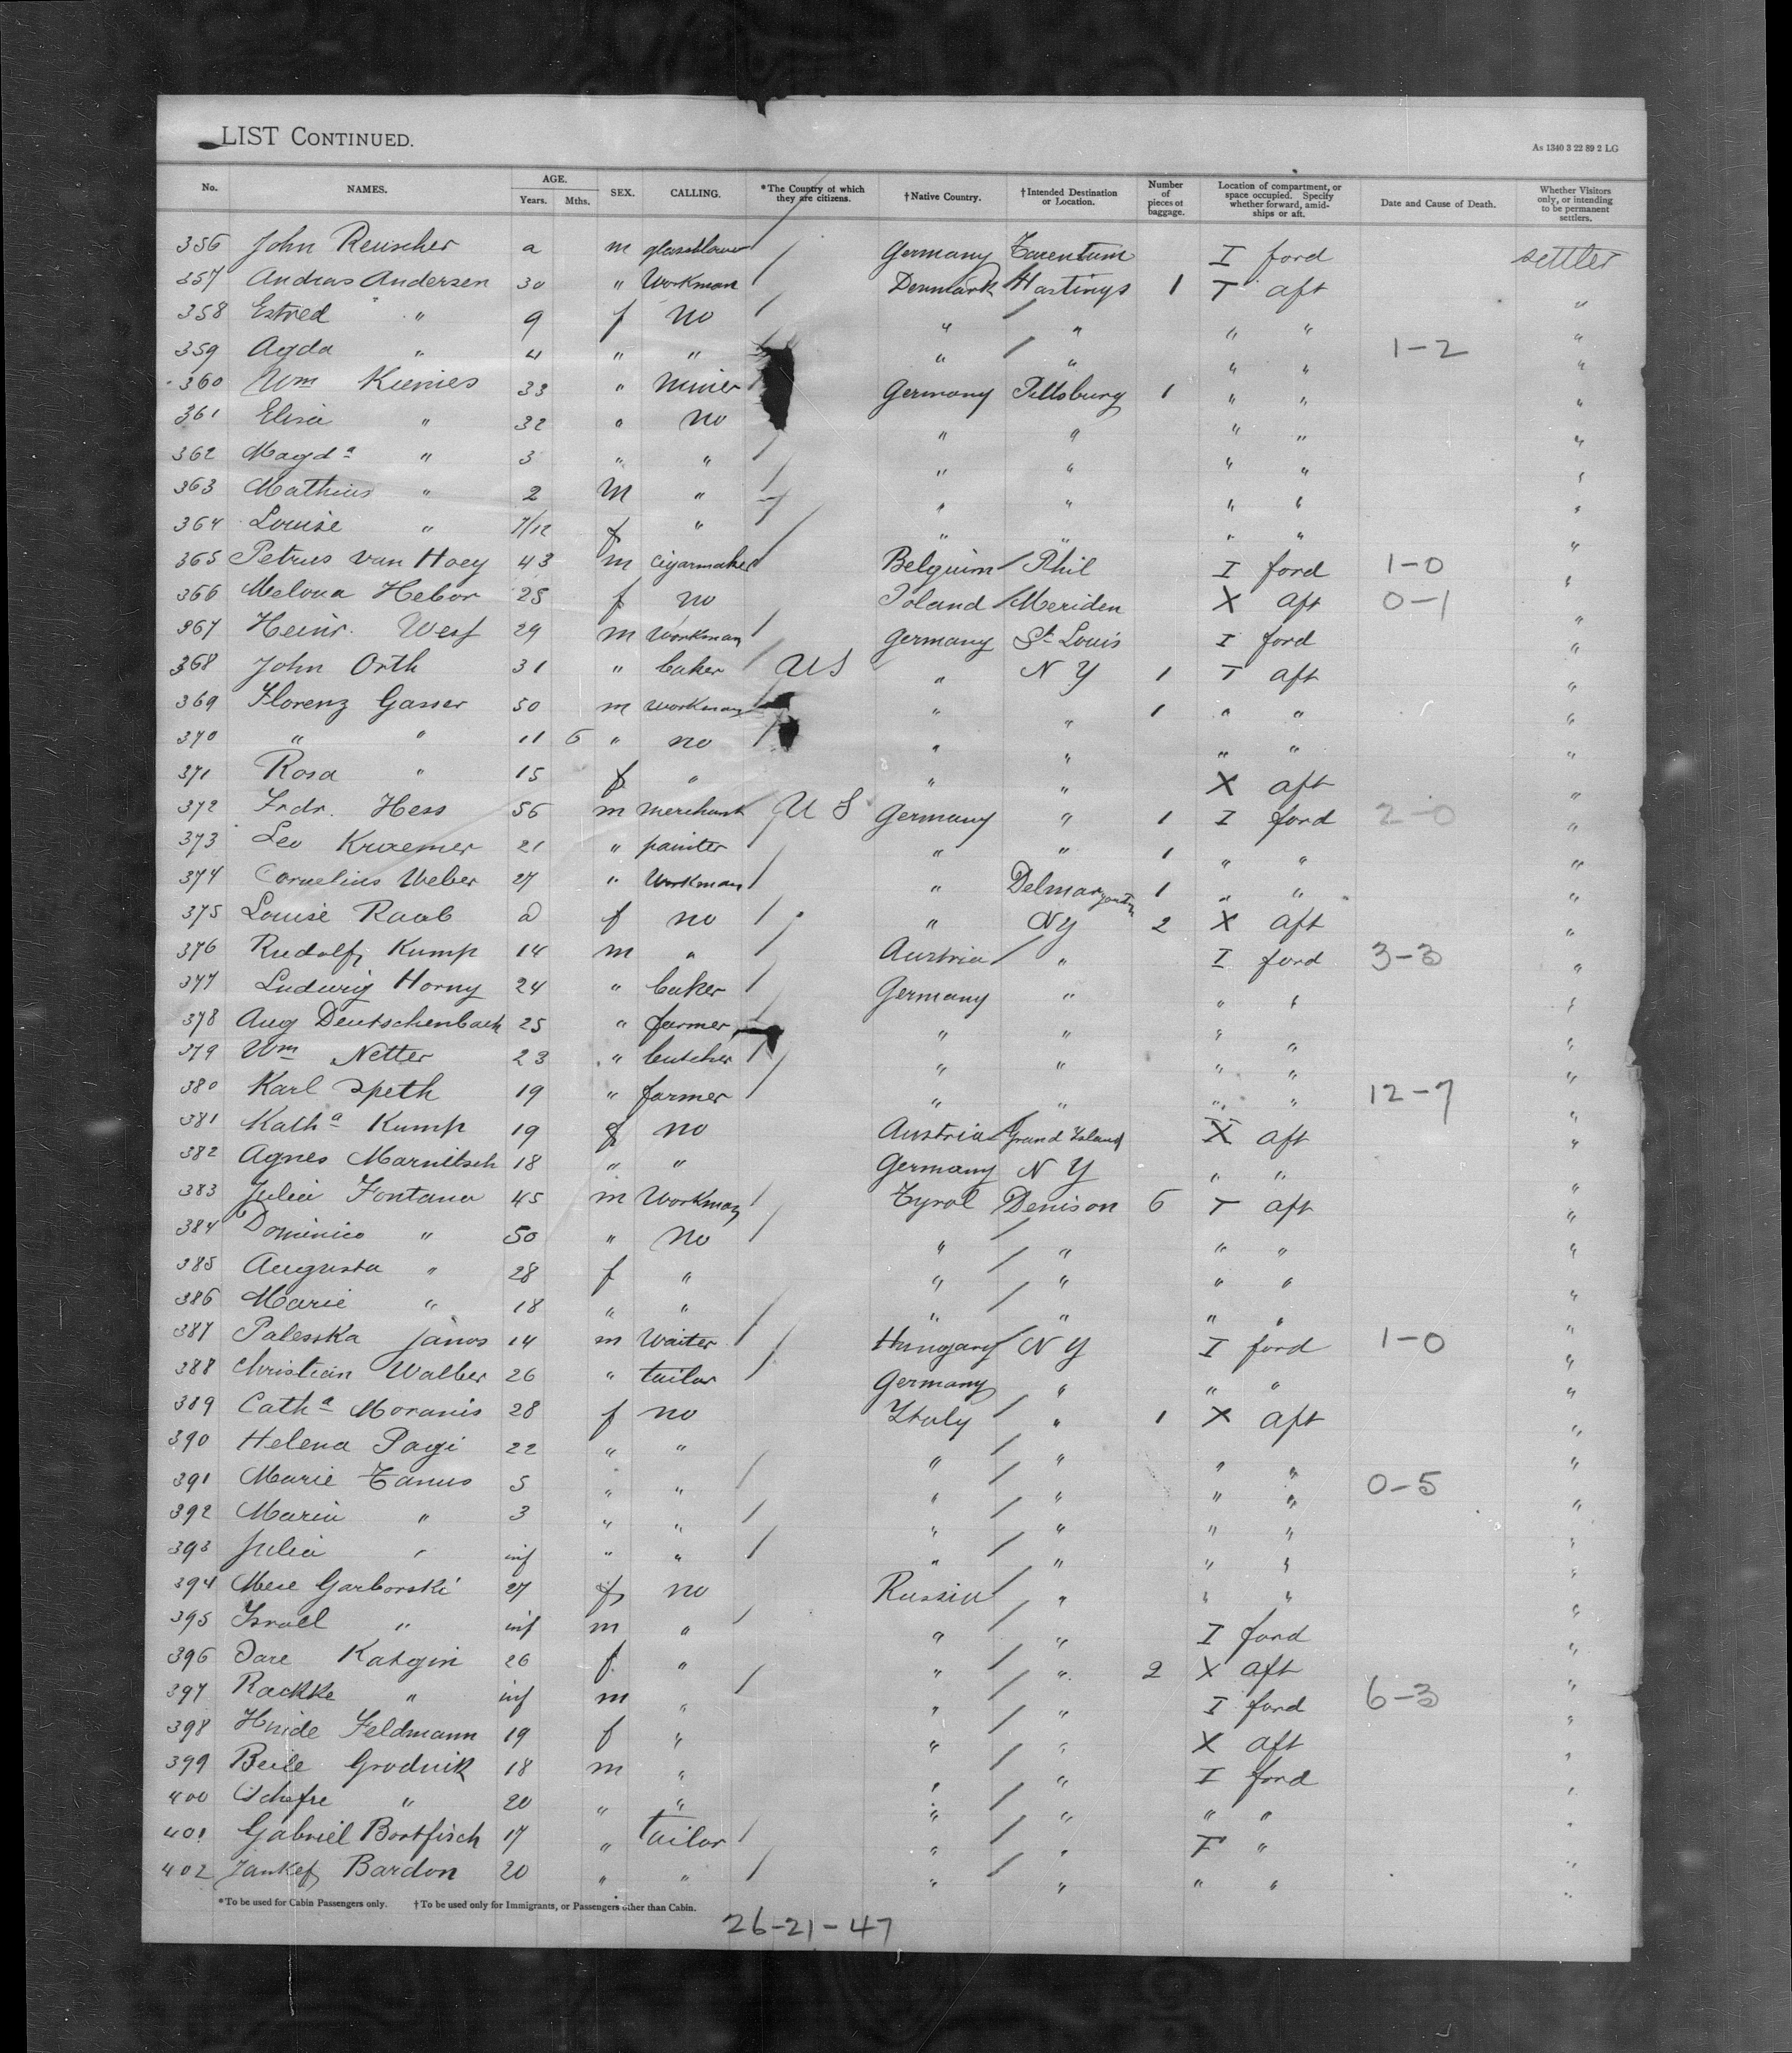 LIST CONTINUED.
As 1340 3 22 89 2 LG
No. NAMES. AGE. Years. Mths. SEX. CALLING. *The Country of which they are citizens. †Native Country. †Intended Destination or Location. Number of pieces of baggage. Location of compartment, or space occupied. Specify whether forward, amidships or aft. Date and Cause of Death. Whether Visitors only, or intending to be permanent settlers.
356 John Reuscher a m glassblower / Germany Tarentum I ford settler
357 Andras Andersen 30 " Workman / Denmark Hastings 1 T aft "
358 Estred " 9 f no / " / " " " "
359 Agda " 4 " " " / " " " 1-2 "
360 Wm Kienies 33 " miner / Germany Pittsburg 1 " " "
361 Elisa " 32 " no " " " " "
362 Magda " 3 " " / " " " " "
363 Mathius " 2 m " / " " " " "
364 Louise " 7/12 f " / " " " " "
365 Petrus van Hoey 43 m cigarmaker Belguim / Phil I ford 1-0 "
366 Melona Hebor 25 f no Poland / Meriden X aft 0-1 "
367 Heinr. Wesf 29 m Workman / Germany St Louis I ford "
368 John Orth 31 " baker / US " N Y 1 T aft "
369 Florenz Gasser 50 m workman / " " 1 " " "
370 " " 11 6 " no / " " " " "
371 Rosa " 15 f " " " X aft "
372 Frdr. Hess 56 m merchant / U S Germany " 1 I ford 2-0 "
373 Leo Kraemer 21 " painter / " " 1 " " "
374 Cornelius Weber 27 " Workman / " Delmar 1 " " "
375 Louise Raab a f no / " NY 2 X aft "
376 Rudolf Kump 14 m " / Austria / " I ford 3-3 "
377 Ludwig Horny 24 " baker / Germany " " " "
378 Aug Deutschenbach 25 " farmer " " " " "
379 Wm Netter 23 " butcher / " " " " "
380 Karl Speth 19 " farmer / " " " " 12-7 "
381 Katha Kump 19 f no Austria / Grand Island X aft "
382 Agnes Marnitsch 18 " " Germany N Y " " "
383 Julia Fontana 45 m Workman / Tyrol Denison 6 T aft "
384 Dominico " 50 " no / " / " " " "
385 Augusta " 28 f " " / " " " "
386 Marie " 18 " " / " / " " " "
387 Palesska Janos 14 m Waiter / Hungary / N Y I ford 1-0 "
388 Christian Walber 26 " tailor / Germany " " " "
389 Catha Moranis 28 f no Italy / " 1 X aft "
390 Helena Pagi 22 " " " / " " " "
391 Marie Tanus 5 " " / " / " " " 0-5 "
392 Maria " 3 " " / " / " " " "
393 Julia " inf " " / " / " " " "
394 Mere Garborski 27 f no Russia / " " " "
395 Israel " inf m " / " / " I ford "
396 Dare Katgin 26 f " " / " 2 X aft "
397 Rackke " inf m " / " / " I ford 6-3 "
398 Hnide Feldmann 19 f " " / " X aft "
399 Beile Grodnik 18 m " " / " I ford "
400 Schefre " 20 " " " / " " " "
401 Gabriel Bortfisch 17 " tailor / " / " T " "
402 Jankef Bardon 20 " " / " / " " " "
*To be used for Cabin Passengers only. †To be used only for Immigrants, or Passengers other than Cabin.
26-21-47